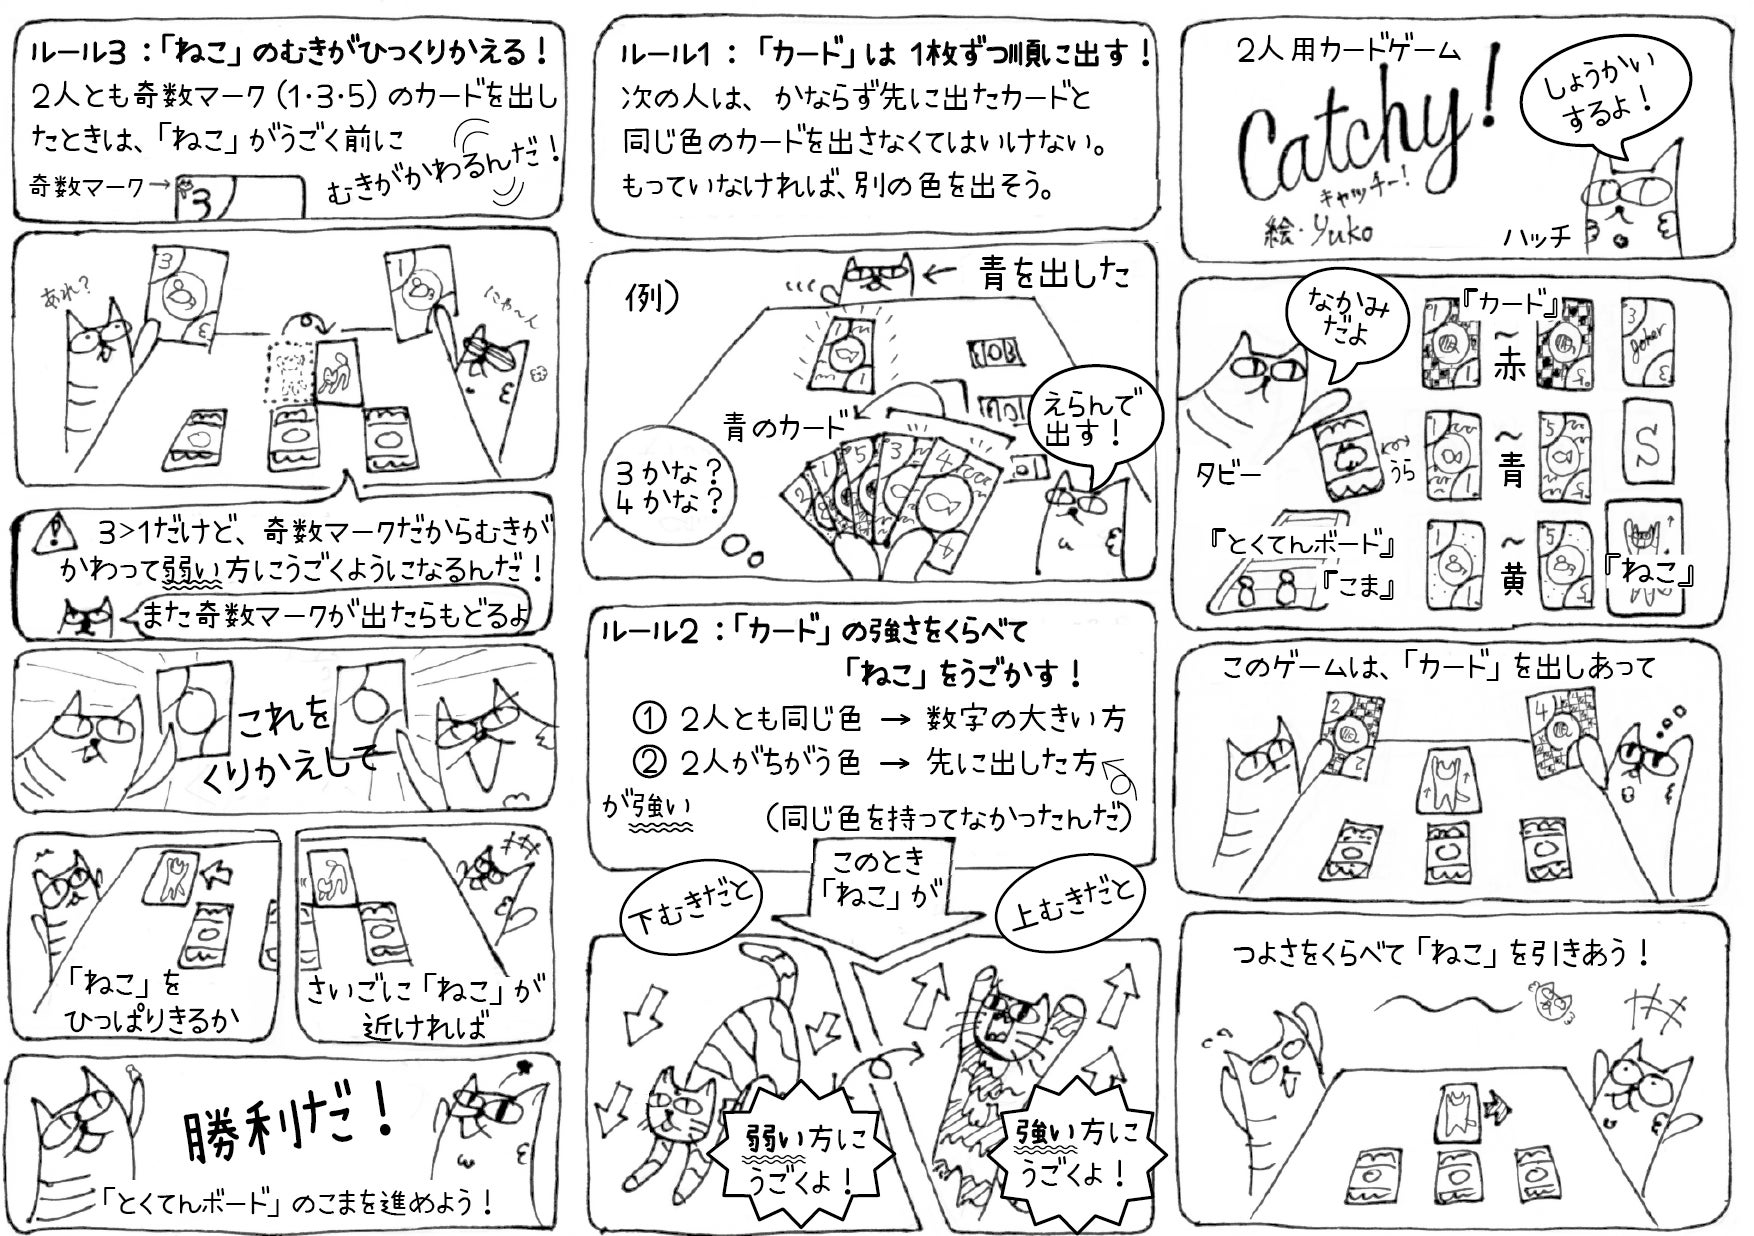 2人用カードゲーム
Catchy!
キャッチー!
絵・Yuko
しょうかい
するよ!
ハッチ
なかみ
だよ
『カード』
1
〜
赤
3
Joker
3
タビー
うら
1
〜
青
5
S
『とくてんボード』
『こま』
1
〜
黄
5
『ねこ』
このゲームは、「カード」を出しあって
2
4
つよさをくらべて「ねこ」を引きあう!
ルール1:「カード」は1枚ずつ順に出す!
次の人は、かならず先に出たカードと
同じ色のカードを出さなくてはいけない。
もっていなければ、別の色を出そう。
例)
青を出した
青のカード
えらんで
出す!
3かな?
4かな?
2
1
5
3
4
ルール2:「カード」の強さをくらべて
「ねこ」をうごかす!
① 2人とも同じ色 → 数字の大きい方
② 2人がちがう色 → 先に出した方
が強い
(同じ色を持ってなかったんだ)
このとき
「ねこ」が
上むきだと
下むきだと
強い方に
うごくよ!
弱い方に
うごくよ!
ルール3:「ねこ」のむきがひっくりかえる!
2人とも奇数マーク(1・3・5)のカードを出し
たときは、「ねこ」がうごく前に
むきがかわるんだ!
奇数マーク→
3
あれ?
3
1
にゃ〜ん
3>1だけど、奇数マークだからむきが
かわって弱い方にうごくようになるんだ!
また奇数マークが出たらもどるよ
これを
くりかえして
「ねこ」を
ひっぱりきるか
さいごに「ねこ」が
近ければ
勝利だ!
「とくてんボード」のこまを進めよう!